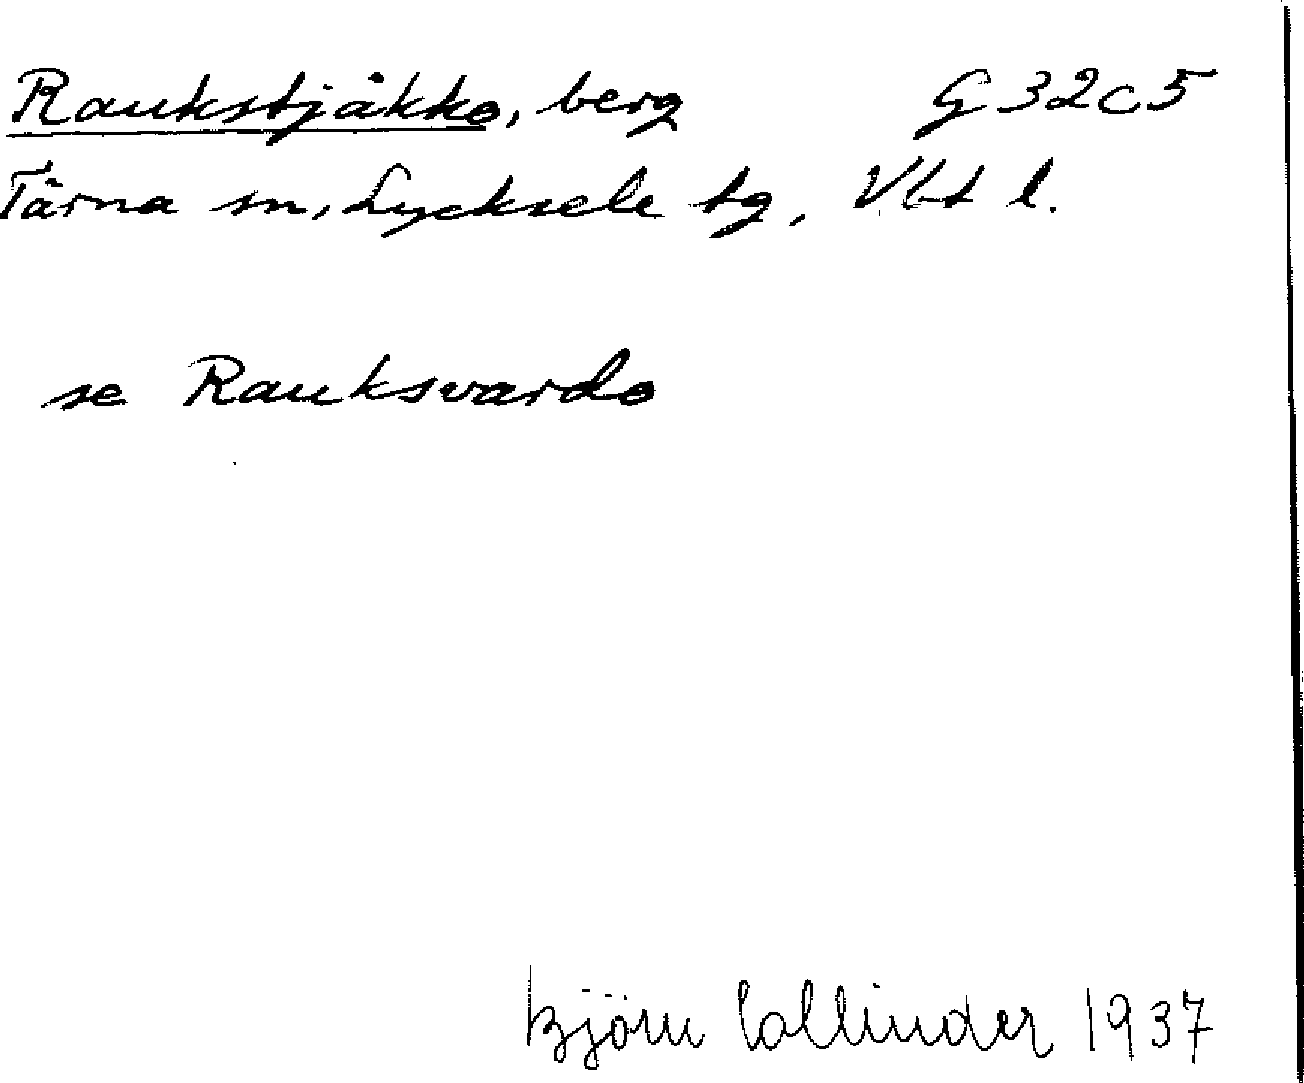 Raukstjåkko, berg G 32 c 5
Tärna sn, Lycksele tg, Vbt l.
se Rauksvardo
Björn Collinder 1937